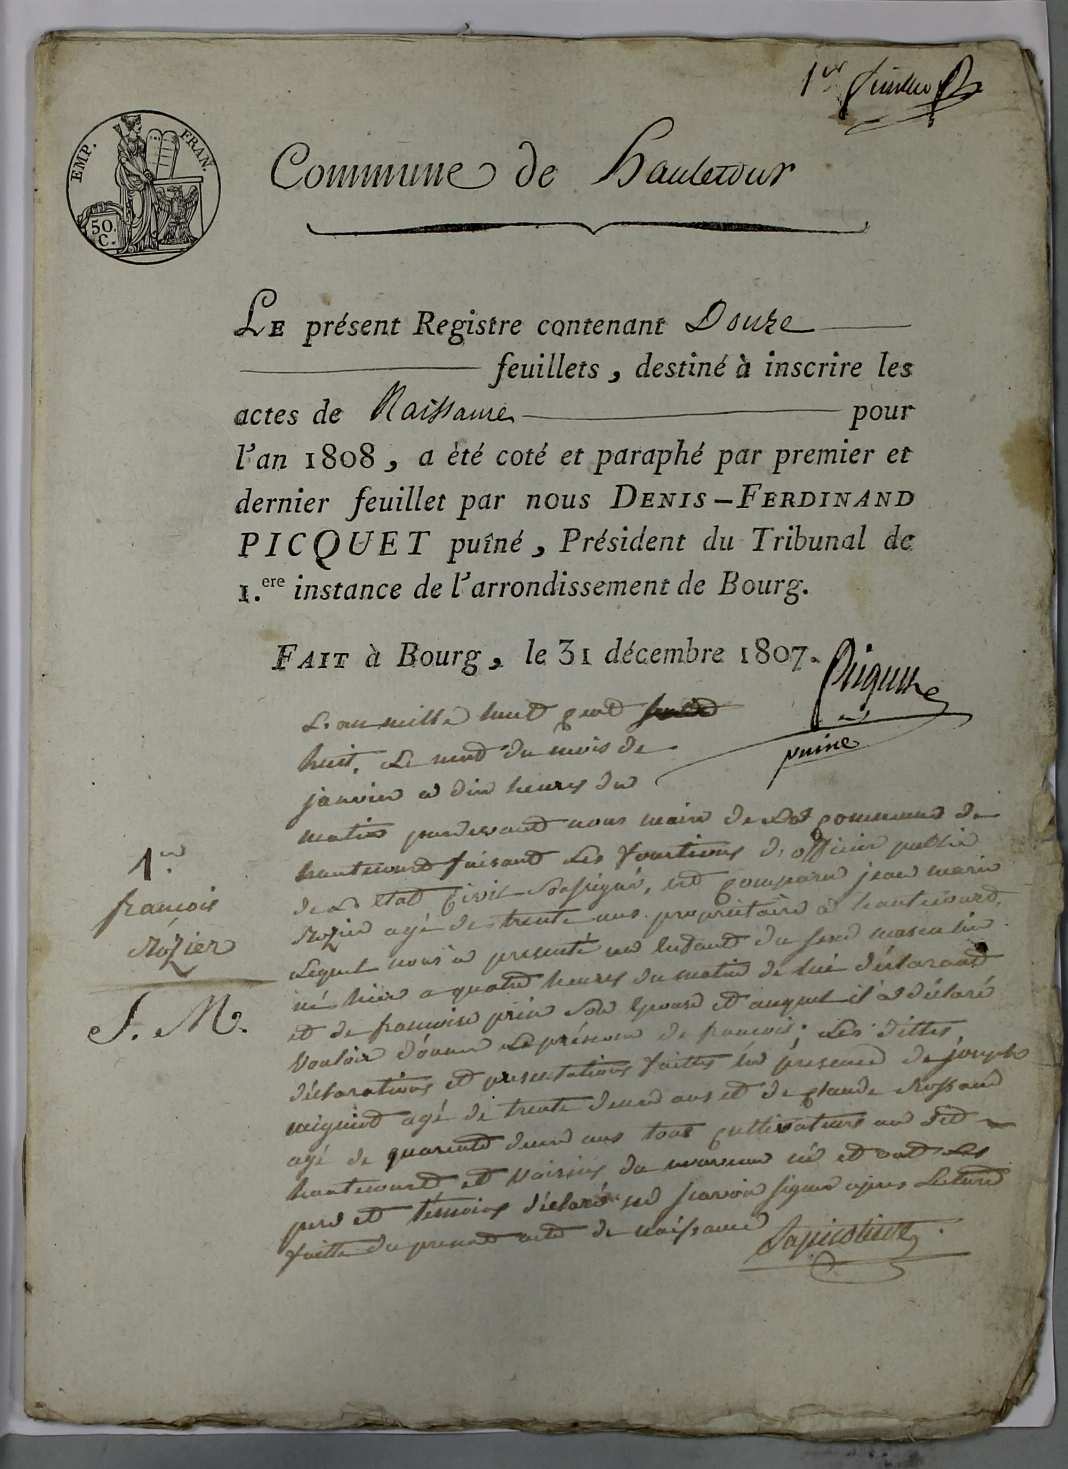 1er feuillet
EMP. FRAN.
50.
C.
Commune de hautecour
LE présent Registre contenant Douze
feuillets, destiné à inscrire les
actes de Naissance pour
l'an 1808, a été coté et paraphé par premier et
dernier feuillet par nous DENIS-FERDINAND
PICQUET puîné, Président du Tribunal de
1.ere instance de l'arrondissement de Bourg.
FAIT à Bourg, le 31 décembre 1807.
Picquet
puiné
L'an mille huit cent
huit, le neuf du mois de
janvier a dix heures du
matin pardevant nous maire de la commune de
hautecourt faisant les fonctions d'officier public
de L'état Civil Soussigné, est comparu jean marie
Rozier agé de trente ans propriétaire a hautecourt,
Lequel nous a presenté un Enfant du sexe masculin
né hier a quatre heures du matin de lui déclarant
et de francoise prin son Epouse et auquel il a déclaré
vouloir donner Le prénom de francois; Les dittes
déclarations et presentations faittes en présence de joseph
agé de trente deux ans et de Claude Rossand
agé de quarente deux ans tous cultivateurs au dit
hautecourt et voisins du nouveau né et ont Les
pere et témoins déclaré ne scavoir signer apres Lecture
faitte du present acte de naissance
1er
francois
Rozier
J. M.